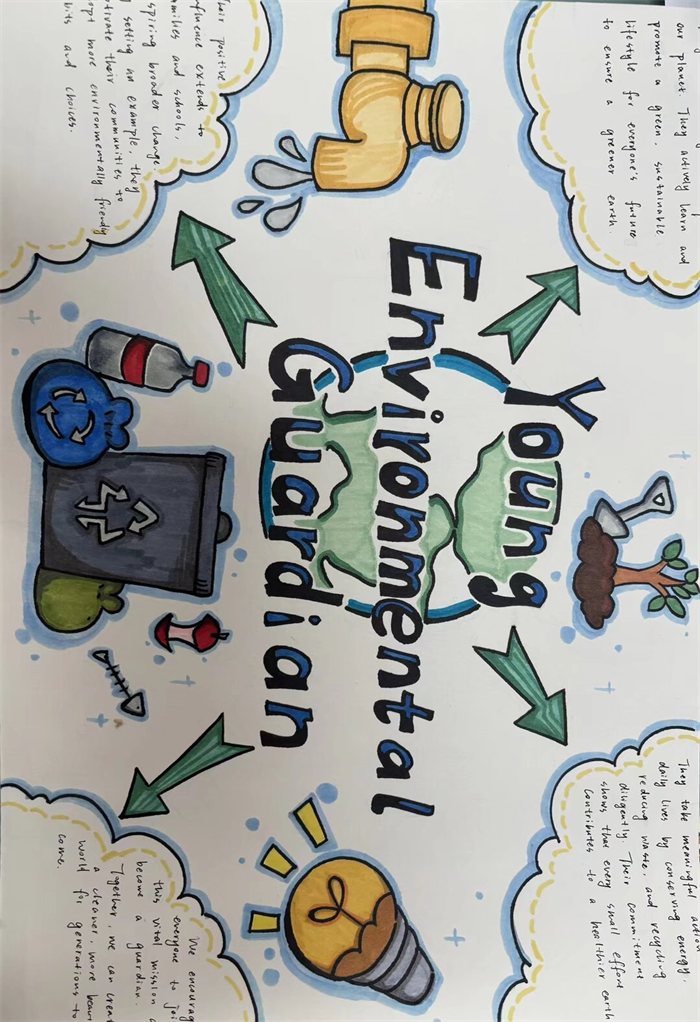 our planet. They actively learn and
promote a green, sustainable
lifestyle for everyone's future
to ensure a greener earth.
They take meaningful action
daily lives by conserving energy.
reducing waste, and recycling
diligently. Their commitment
shows that every small effort
contributes to a healthier earth
Young
Environmental
Guardian
Their positive
fluence extends to
milies and schools,
spiring broader change.
setting an example, they
otivate their communities to
opt more environmentally friendly
bits and choices.
We encourag
everyone to joi
this vital mission
become a guardian.
Together, we can creat
a cleaner, more beau
world for generations to
come.